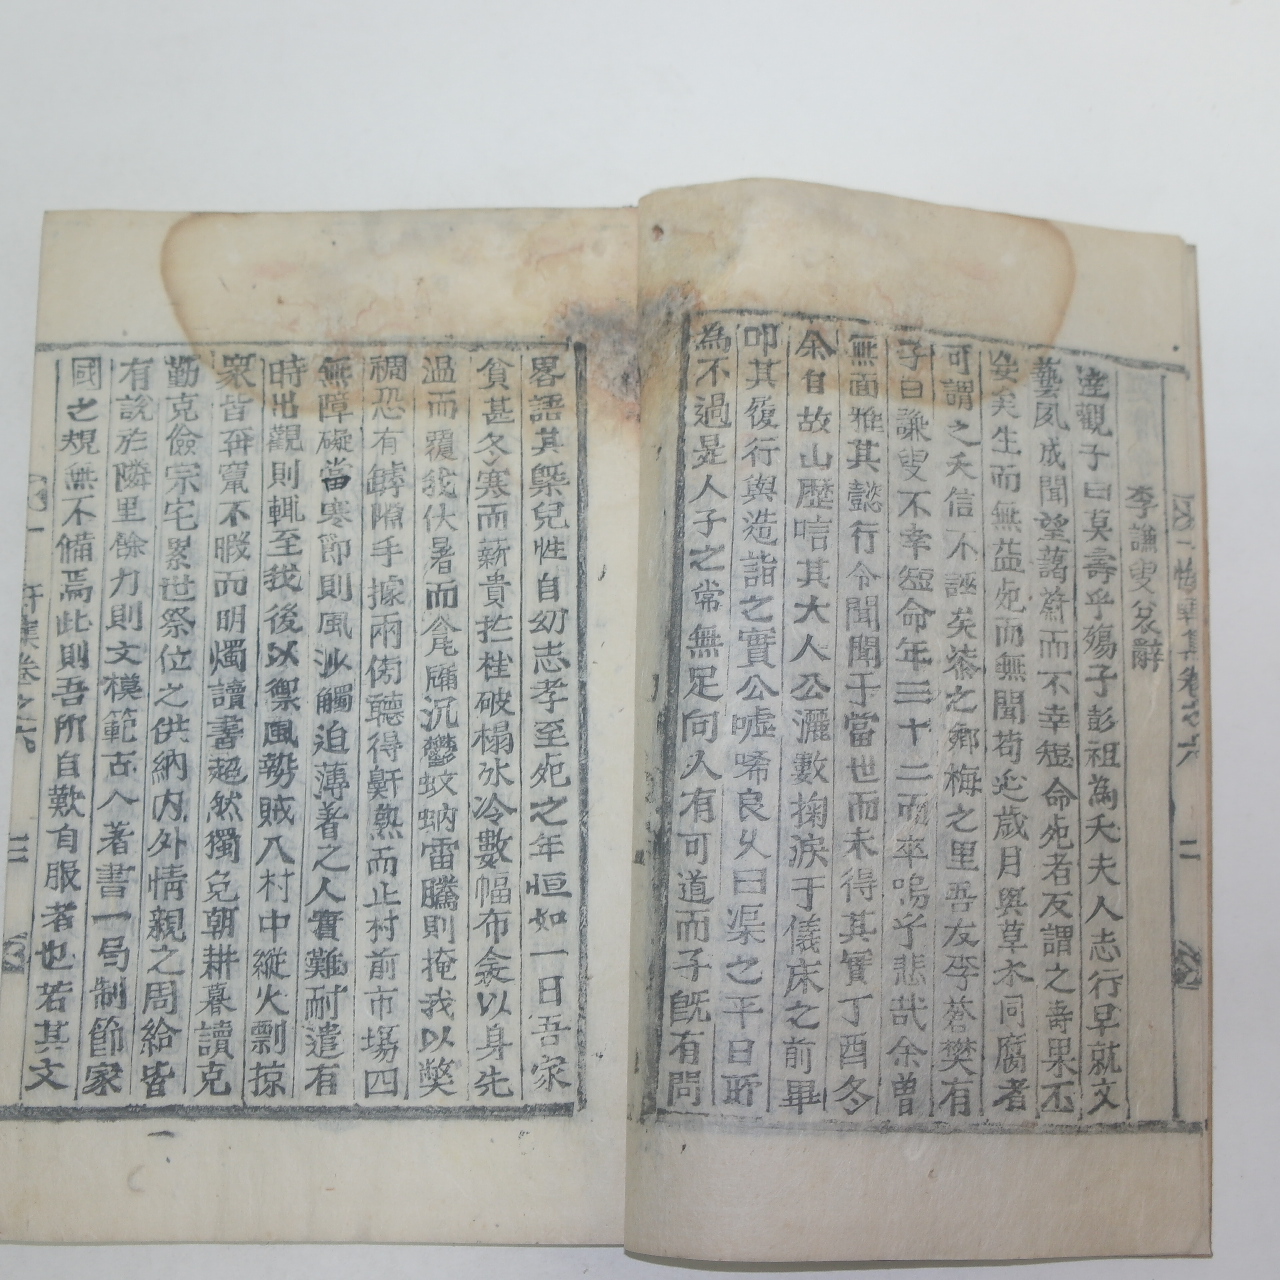 李謙叟哀辭
達觀子曰莫壽乎殤子彭祖為夭夫人志行早就文
藝夙成聞望藹蔚而不幸短命死者友謂之壽果丕
矣生而無益死而無聞苟延歲月與草木同腐者
可謂之夭信不誣矣漆之鄕梅之里吾友李蒼樊有
子曰謙叟不幸短命年三十二而卒嗚乎悲哉余曾
無面雅其懿行令聞聞于當世而未得其實丁酉冬
余自故山歷唁其大人公灑數掬淚于儀床之前畢
叩其履行與造詣之實公噓唏良久曰渠之平日所
為不過是人子之常無足向人有可道而子旣有問
畧語其槩兒性自幼志孝至死之年恒如一日吾家
貧甚冬寒而薪貴拦桂破榻氷冷數幅布衾以身先
温而覆我伏暑而瓮沉鬱蚊蚋雷騰則掩我以獘
裯恐有罅隙手據兩傍聽得鼾熟而止村前市場四
無障礙當寒節則風沙觸迫薄著之人實難耐遣有
時出觀則輒至我後以禦風勢賊入村中縱火剽掠
衆皆奔竄不暇而明燭讀書超然獨免朝耕暮讀克
勤克儉宗宅累世祭位之供納内外情親之周給皆
有說於隣里餘力則文模範古人著書一局制節家
國之規無不備焉此則吾所自歎自服者也若其文
集卷之六
二
集卷之六